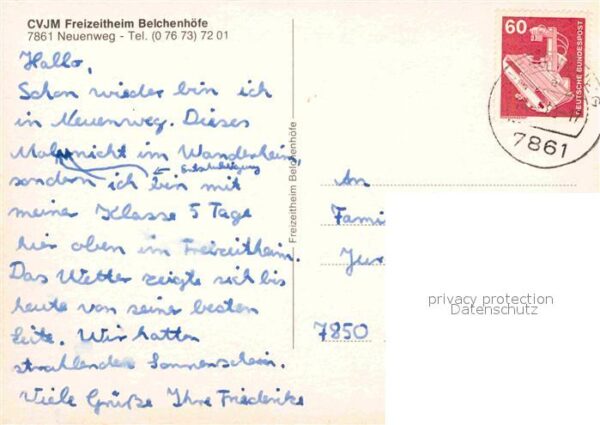 CVJM Freizeitheim Belchenhöfe
7861 Neuenweg - Tel. (0 76 73) 72 01
Hallo,
Schon wieder bin ich
in Neuenweg. Dieses
Mal nicht im Wanderheim,
← Entschuldigung
sondern ich bin mit
meiner Klasse 5 Tage
hier oben im Freizeitheim.
Das Wetter zeigte sich bis
heute von seiner besten
Seite. Wir hatten
strahlenden Sonnenschein.
Viele Grüße Ihre Friederike
Freizeitheim Belchenhöfe
60
DEUTSCHE BUNDESPOST
7861
An
Fami
7850
privacy protection
Datenschutz